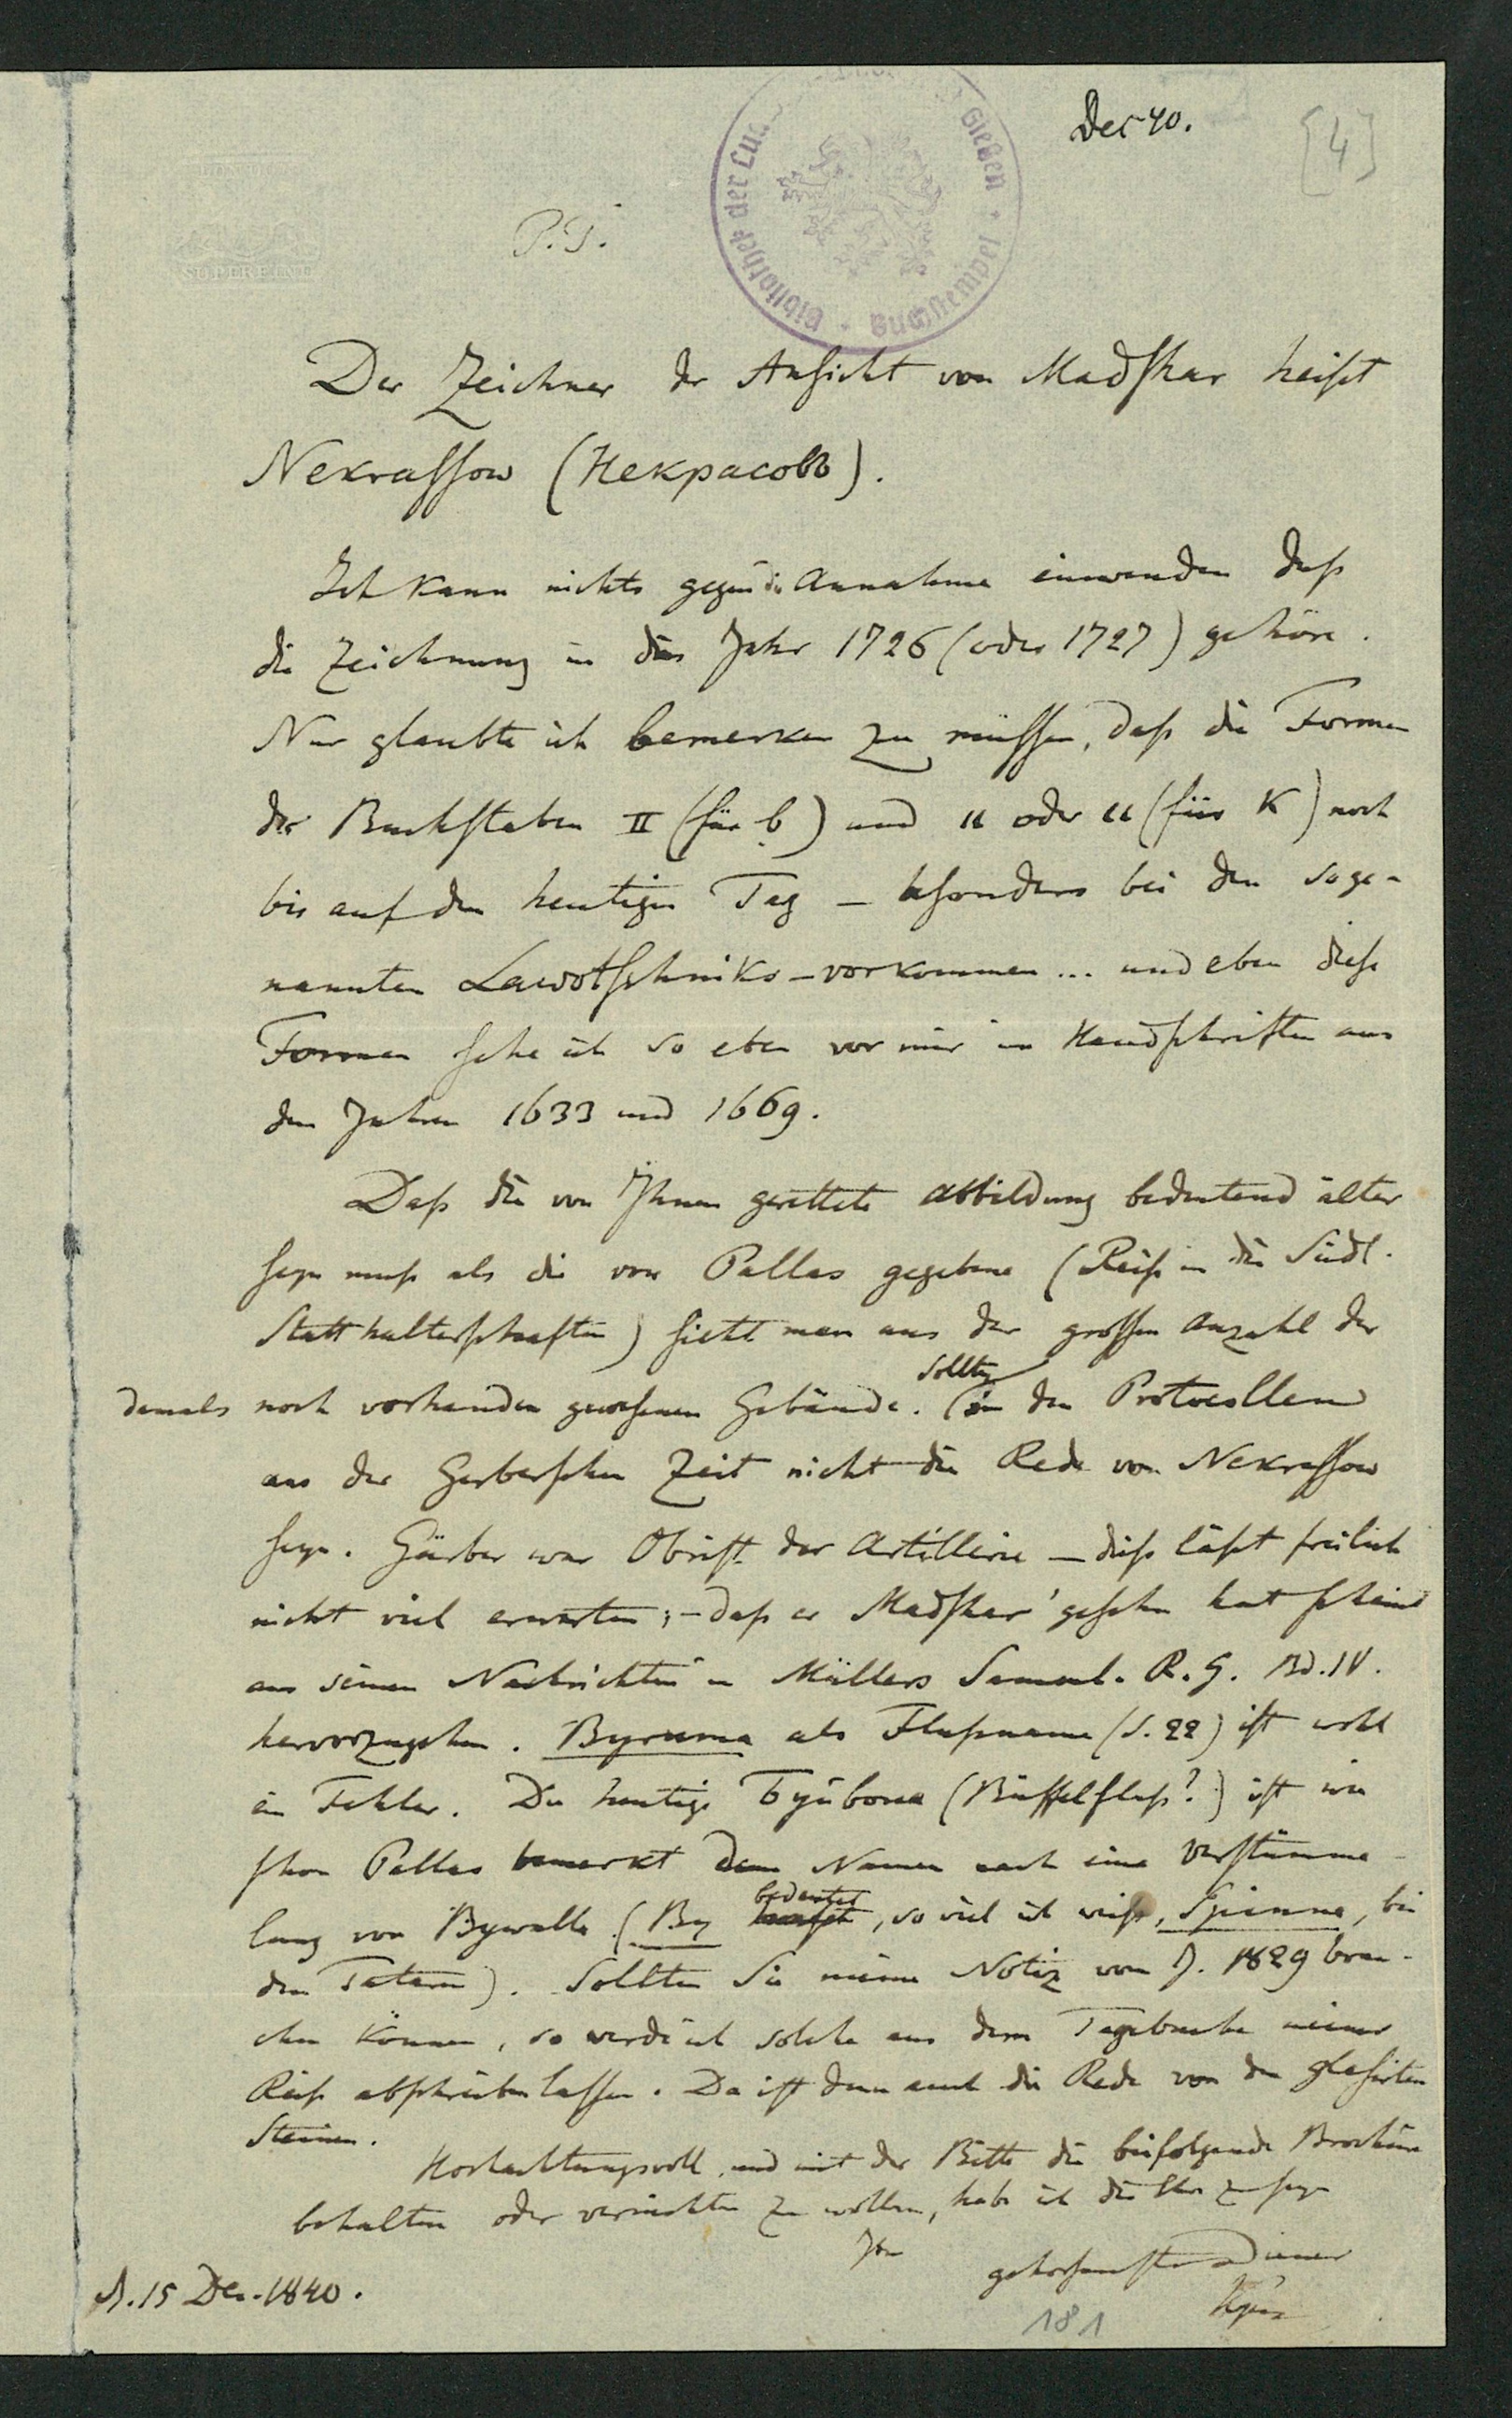 Dec 40.
[4]
Bibliothek der Lud Gießen
Buchstempel
SUPERFINE
P. S.
Der Zeichner der Ansicht von Madshar heißt
Nekrassow (Некрасовъ).
Ich kann nichts gegen die Annahme einwenden daß
die Zeichnung in das Jahr 1726 (oder 1727) gehöre.
Nur glaubte ich bemerken zu müssen, daß die Formen
der Buchstaben II (für b) und и oder u (für K) noch
bis auf den heutigen Tag – besonders bei den soge-
nannten Lawotschniks – vorkommen ... und eben diese
Formen sehe ich so eben vor mir in Handschriften aus
den Jahren 1633 und 1669.
Daß die von Ihnen gerettete Abbildung bedeutend älter
seyn muß als die von Pallas gegebene (Reise in die Südl.
Statthalterschaften) sieht man aus der großen Anzahl der
damals noch vorhanden gewesenen Gebäude. Sollte in den Protocollen
aus der Gerberschen Zeit nicht die Rede von Nekrassow
seyn. Gärber war Obrist der Artillerie – dieß läßt freilich
nicht viel erwarten; – daß er Madshar gesehn hat scheint
aus seinen Nachrichten in Müllers Samml. R. G. Bd. IV.
hervorzugehen. Byruma als Flußname (S. 22) ist wohl
ein Fehler. Die heutige (Büffelfluß?) ist wie
schon Pallas bemerkt dem Namen nach eine Verstümme-
lung von Bywalla (By bedeutet, so viel ich weiß, Spinne, bei
den Tatern). Sollten Sie meine Notiz vom J. 1829 brau-
chen können, so werde ich solche aus dem Tagebuche meiner
Reise abschreiben lassen. Da ist denn auch die Rede von den glasirten
Steinen.
Hochachtungsvoll und mit der Bitte die beifolgende Brochüre
behalten oder vernichten zu wollen, habe ich die Ehre zu seyn
Ihr
gehorsamster Diener
d. 15 Dec. 1840.
181